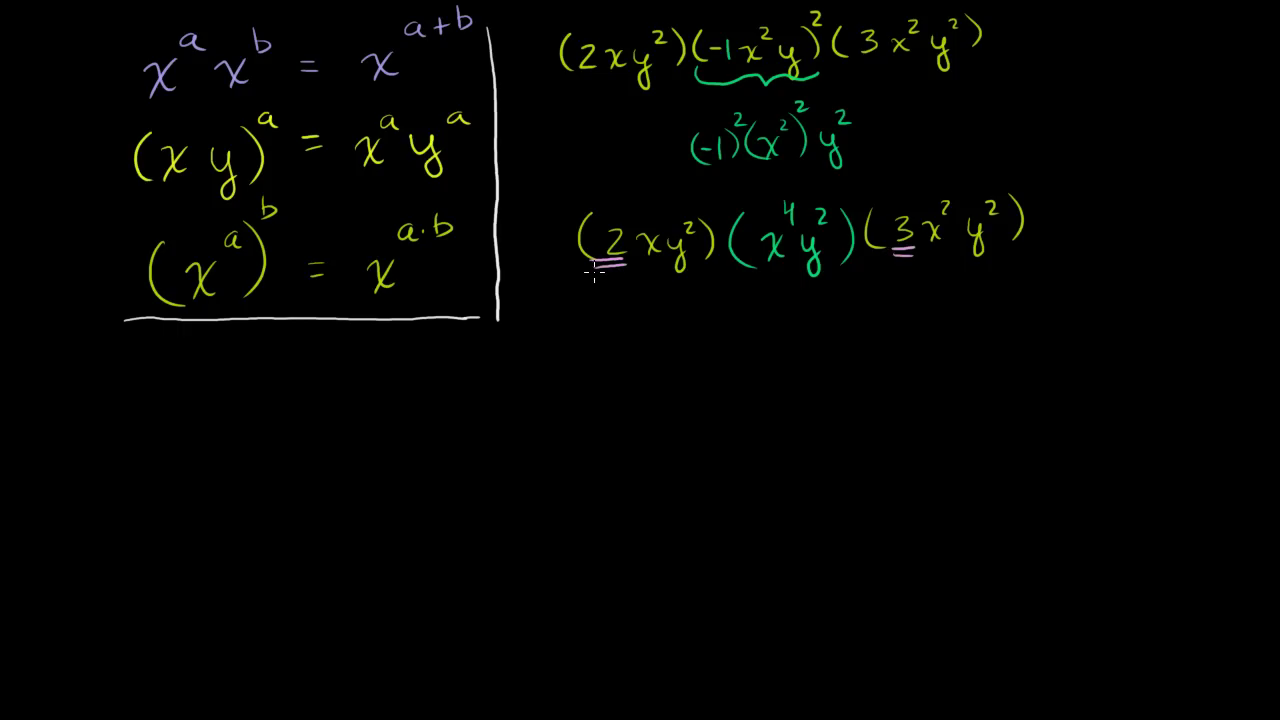 xᵃ xᵇ = xᵃ⁺ᵇ
(x y)ᵃ = xᵃ yᵃ
(xᵃ)ᵇ = xᵃ·ᵇ
(2xy²)(-1x²y)²(3x²y²)
(-1)²(x²)² y²
(2xy²)(x⁴y²)(3x²y²)